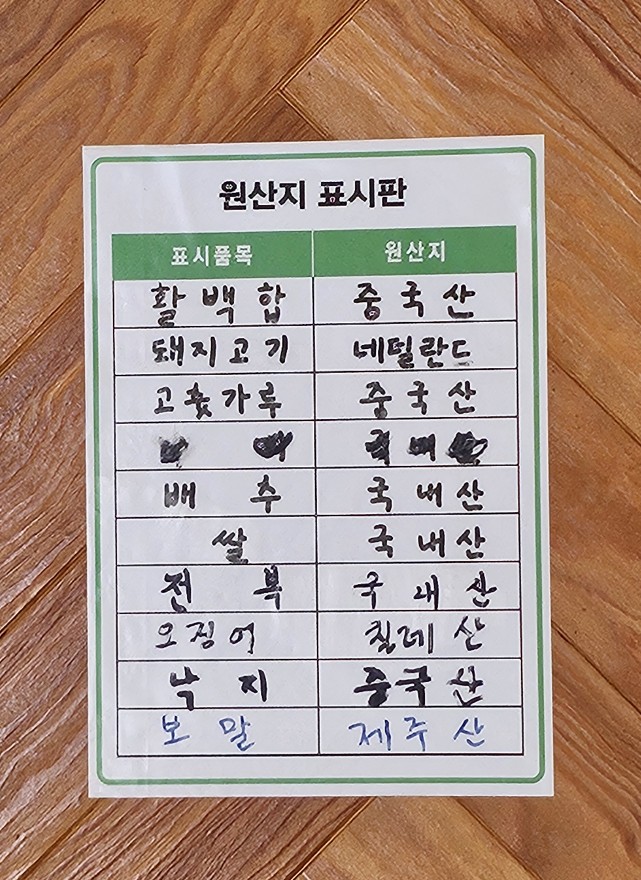 원산지 표시판
표시품목 원산지
활백합 중국산
돼지고기 네덜란드
고춧가루 중국산
배추 국내산
쌀 국내산
전복 국내산
오징어 칠레산
낙지 중국산
보말 제주산